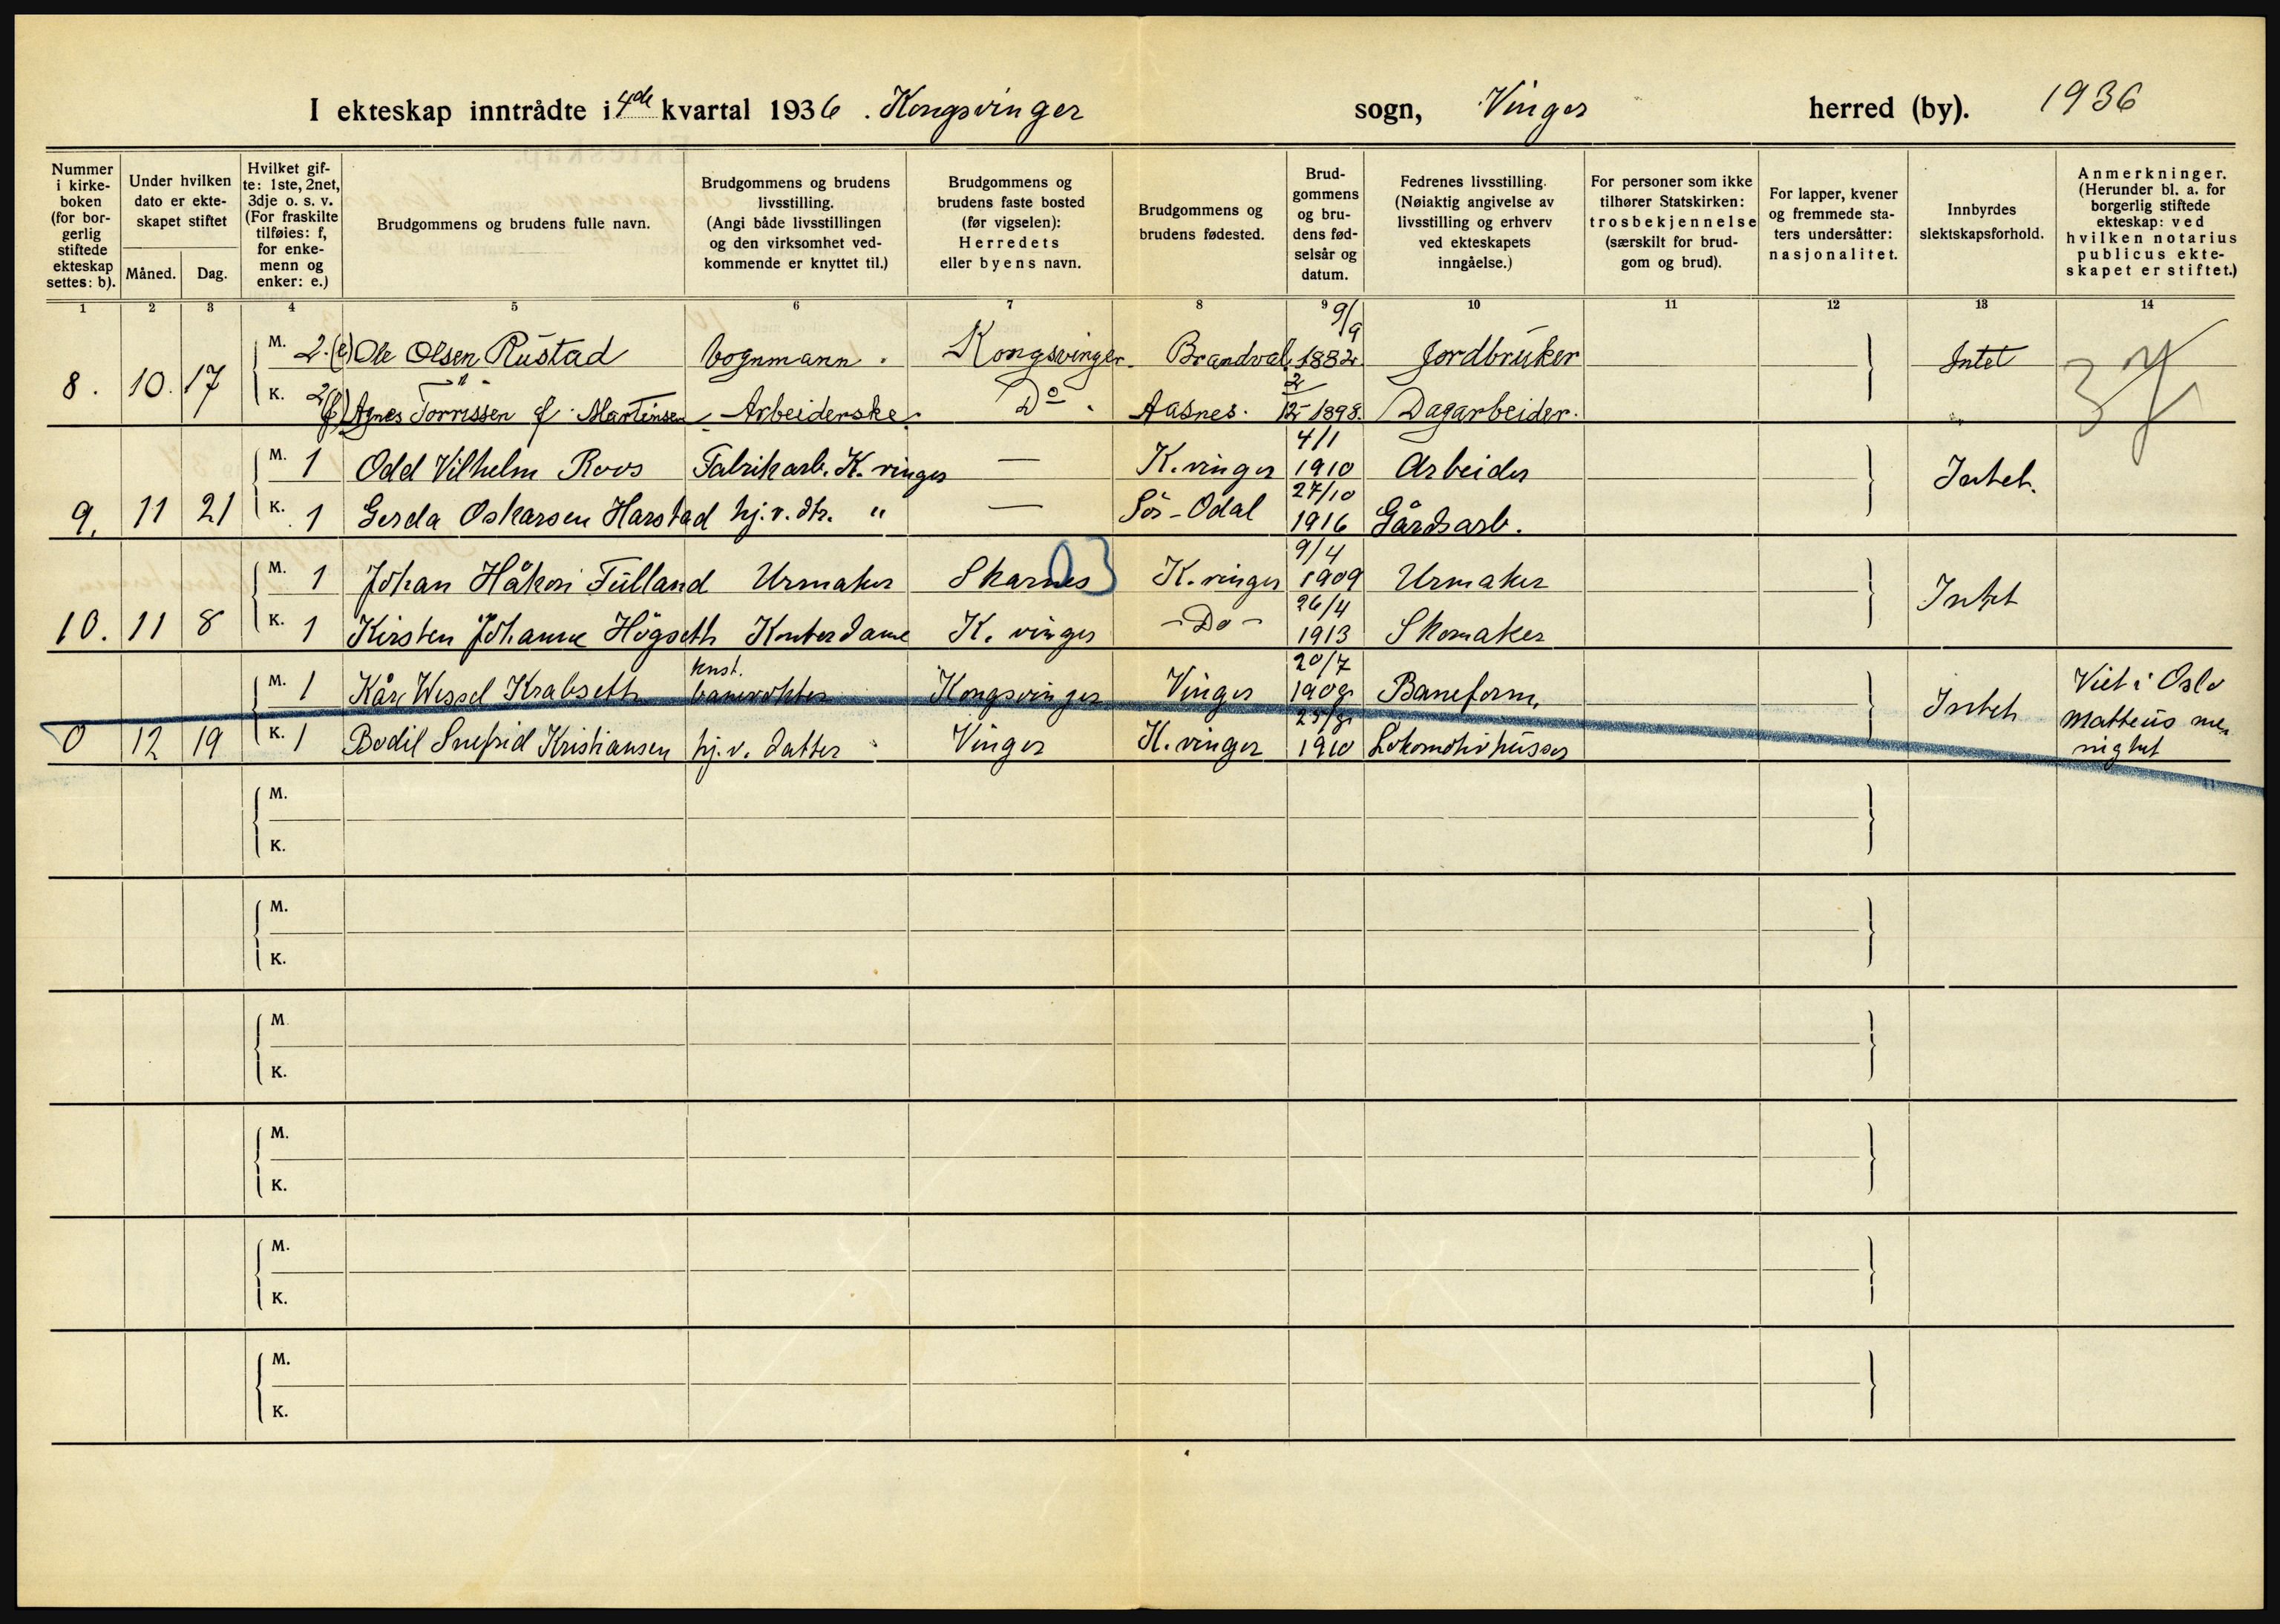 I ekteskap inntrådte i 4de kvartal 1936. Kongsvinger sogn, Vinger herred (by). 1936
Nummer i kirke- boken (for bor- gerlig stiftede ekteskap settes: b).
Under hvilken dato er ekte- skapet stiftet
Måned. Dag.
Hvilket gif- te: 1ste, 2net, 3dje o. s. v. (For fraskilte tilføies: f, for enke- menn og enker: e.)
Brudgommens og brudens fulle navn.
Brudgommens og brudens livsstilling. (Angi både livsstillingen og den virksomhet ved- kommende er knyttet til.)
Brudgommens og brudens faste bosted (før vigselen): Herredets eller byens navn.
Brudgommens og brudens fødested.
Brud- gommens og bru- dens fød- selsår og datum.
Fedrenes livsstilling. (Nøiaktig angivelse av livsstilling og erhverv ved ekteskapets inngåelse.)
For personer som ikke tilhører Statskirken: trosbekjennelse (særskilt for brud- gom og brud).
For lapper, kvener og fremmede sta- ters undersåtter: nasjonalitet.
Innbyrdes slektskapsforhold.
Anmerkninger. (Herunder bl. a. for borgerlig stiftede ekteskap: ved hvilken notarius publicus ekte- skapet er stiftet.)
1 2 3 4 5 6 7 8 9 10 11 12 13 14
9/9
M. 2.(e) Ole Olsen Rustad Vognmann. Kongsvinger. Brandval. 1882. Jordbruker Intet
8. 10. 17
K. 2(f) Agnes Torrissen f. Martinsen Arbeiderske. Do. Aasnes. 2/12 1898. Dagarbeider.
4/1
M. 1 Odd Vilhelm Roos Fabrikarb. K.vinger — K.vinger 1910 Arbeider Intet.
27/10
9. 11 21 K. 1 Gerda Oskarsen Harstad hj.v.dtr. " — Sör-Odal 1916 Gårdsarb.
9/4
M. 1 Johan Håkon Fulland Urmaker Skarnes K.vinger 1909 Urmaker Intet
26/4
10. 11 8 K. 1 Kirsten Johanne Högseth Kontordame K.vinger -Do- 1913 Skomaker
20/7
M. 1 Kåre Wessel Krabseth konst. banevokter Kongsvinger Vinger 1909 Baneform. Intet Viet i Oslo
25/8
0 12 19 K. 1 Bodil Snefrid Kristiansen hj.v. datter Vinger K.vinger 1910 Lokomotivpusser Matteus me-
nighet
M.
K.
M.
K.
M
K.
M.
K.
M.
K.
M.
K.